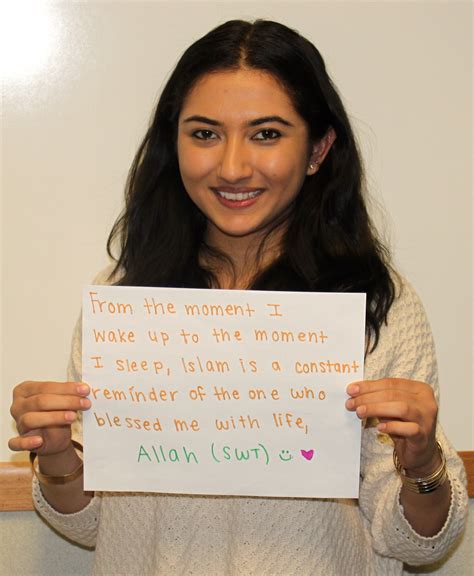 From the moment I
wake up to the moment
I sleep, Islam is a constant
reminder of the one who
blessed me with life,
Allah (SWT) ☺ ♥